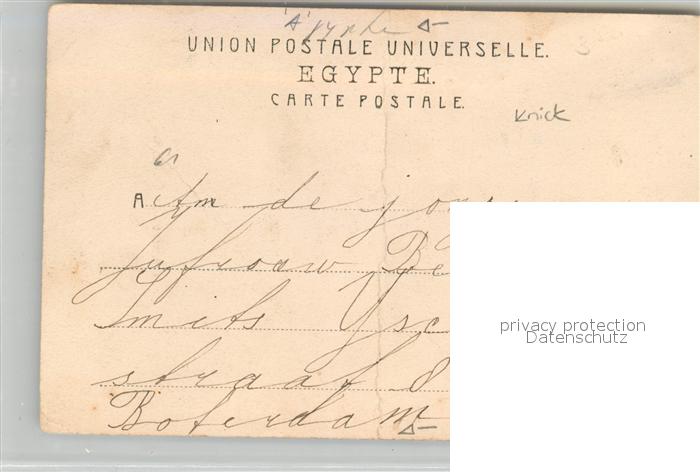 Ägypten
UNION POSTALE UNIVERSELLE.
EGYPTE.
CARTE POSTALE.
Knick
A Am de jong
Jufrouw Be
Smits Ysc
straat 8
Boterdam
privacy protection
Datenschutz